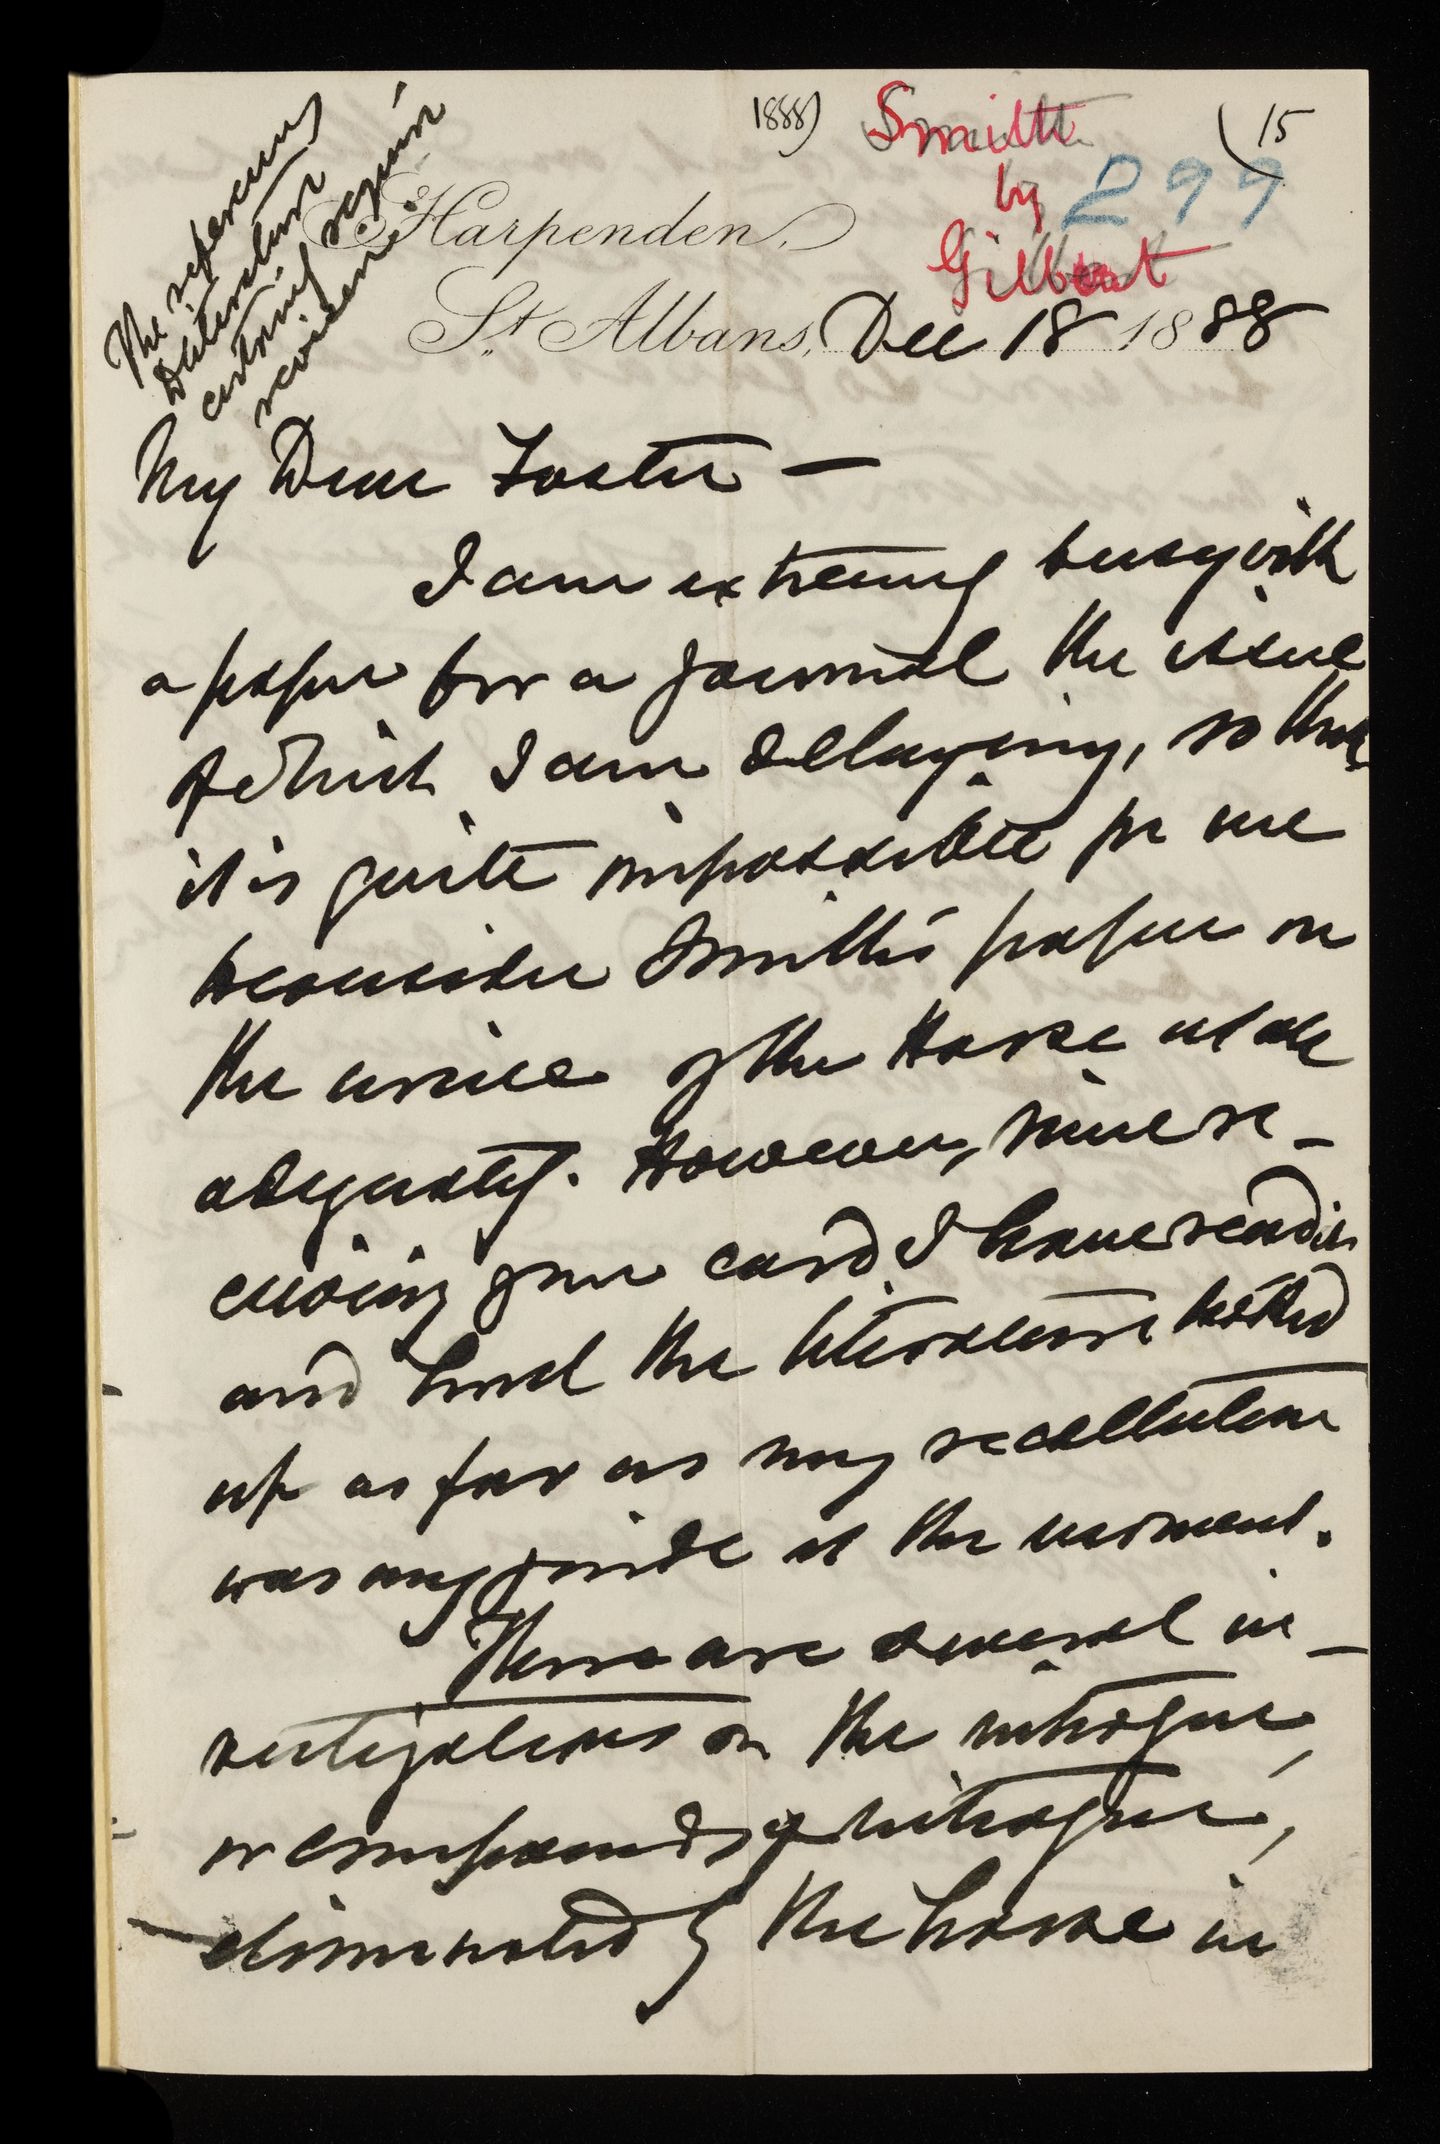 1888)
15
Smith
by
Gilbert
299
The references
to literature
certainly require
revision.
Harpenden,
St. Albans, Dec 18 1888
My Dear Foster —
I am extremely busy with
a paper for a Journal the issue
of which I am delaying, so that
it is quite impossible for me
to consider Smith's paper on
the urine of the Horse at all
adequately. However, since re-
ceiving your card I have read it
and had the literature looked
up as far as my recollection
was any guide at the moment.
There are several in-
vestigations on the nitrogen,
or compounds of nitrogen,
eliminated by the horse in